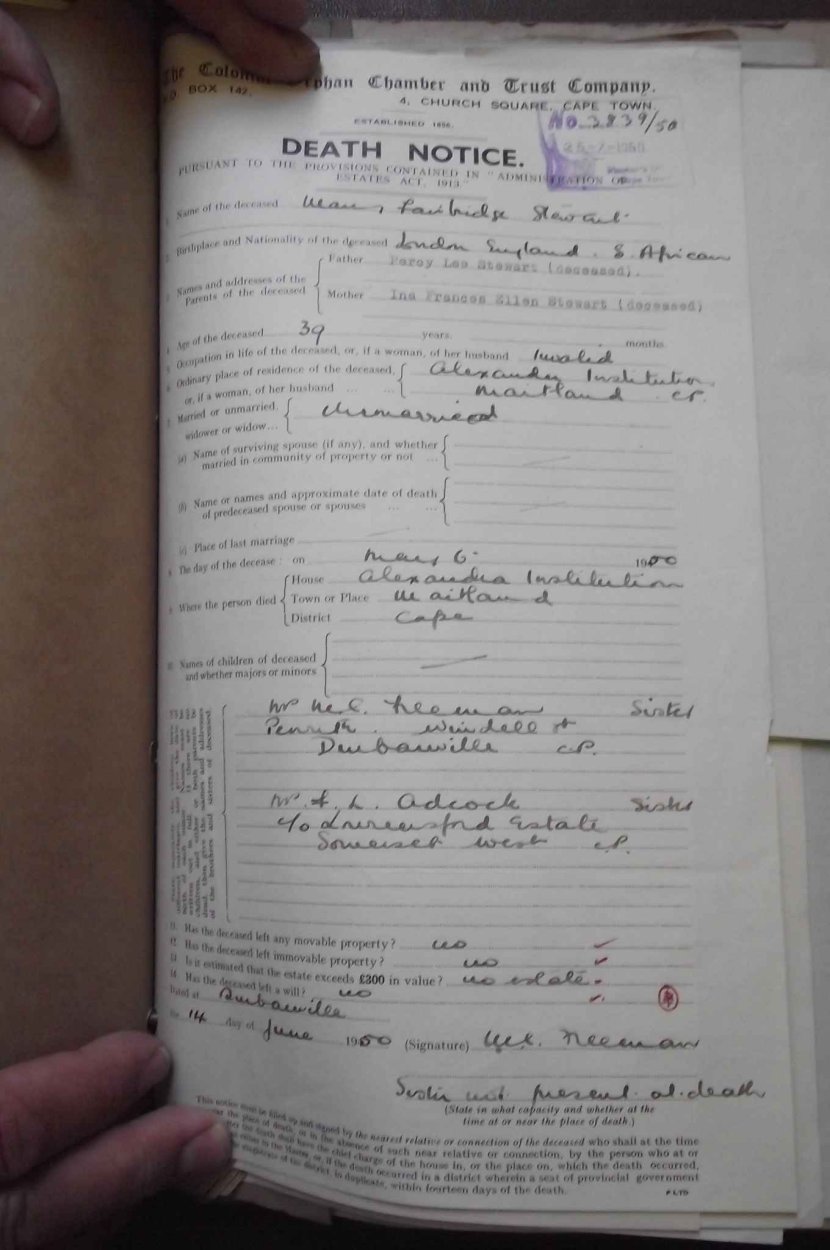 The Colonial Orphan Chamber and Trust Company.
P.O. BOX 142.
4, CHURCH SQUARE, CAPE TOWN.
ESTABLISHED 1856.
No. 2839/50
DEATH NOTICE.
PURSUANT TO THE PROVISIONS CONTAINED IN "ADMINISTRATION OF
ESTATES ACT, 1913."
1 Name of the deceased Fairbridge Stewart
2 Birthplace and Nationality of the deceased London England. S. African
3 Names and addresses of the Parents of the deceased
Father Percy Lea Stewart (deceased).
Mother Ina Frances Ellen Stewart (deceased)
4 Age of the deceased 39 years. months.
5 Occupation in life of the deceased, or, if a woman, of her husband Invalid
6 Ordinary place of residence of the deceased, Alexander Institution,
or, if a woman, of her husband ... ... Maitland CP.
7 Married or unmarried, widower or widow... Unmarried
(a) Name of surviving spouse (if any), and whether
married in community of property or not ...
(b) Name or names and approximate date of death
of predeceased spouse or spouses ... ...
(c) Place of last marriage
8 The day of the decease: on May 6 1950
9 Where the person died
House Alexandra Institution
Town or Place Maitland
District Cape
10 Names of children of deceased
and whether majors or minors
Sister
Durbanville CP.
Adcock Sister
c/o Lourensford Estate
Somerset West CP.
11. Has the deceased left any movable property? no
12. Has the deceased left immovable property? no
13. Is it estimated that the estate exceeds £300 in value? no estate
14. Has the deceased left a will? no
Dated at Durbanville
the 14 day of June 1950 (Signature)
Sister not present at death
(State in what capacity and whether at the
time at or near the place of death.)
This notice must be filled up and signed by the nearest relative or connection of the deceased who shall at the time
or near the place of death, or in the absence of such near relative or connection, by the person who at or
after the death shall have the chief charge of the house in, or the place on, which the death occurred,
either to the Master, or, if the death occurred in a district wherein a seat of provincial government
magistrate of the district, in duplicate, within fourteen days of the death.